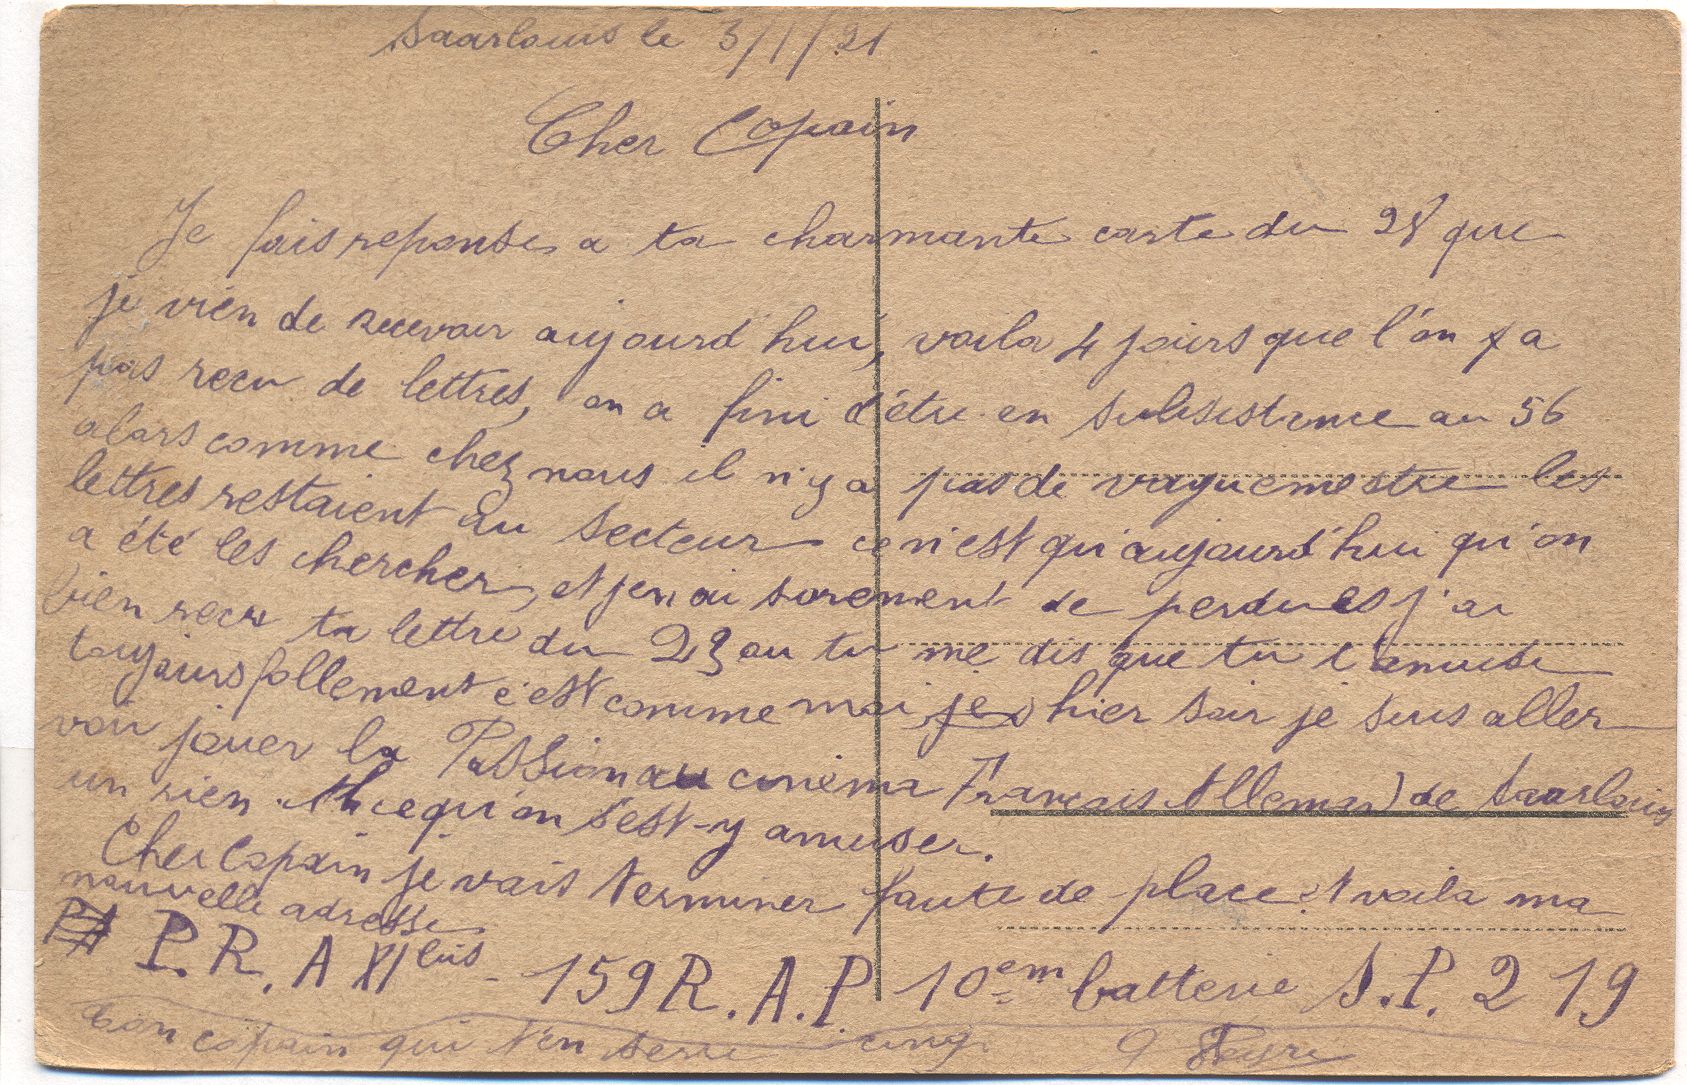 Saarlouis le 3/1/21
Cher Copain
Je fais reponse a ta charmante carte du 28 que
je vien de recevoir aujourd'hui, voila 4 jours que l'on y a
pas recu de lettres, on a fini d'être en subsistance au 56
alors comme chez nous il n'y a pas de vaguemestre les
lettres restaient au secteur ce n'est qu'aujourd'hui qu'on
a été les chercher, et j'en ai surement de perdues j'ai
bien recu ta lettre du 23 ou tu me dis que tu t'amuse
toujours follement c'est comme moi je hier soir je suis aller
voir jouer la Passion au cinéma Francais Alleman de Saarlouis
un rien. Ah ce qu'on s'est-y amuser.
Cher Copain je vais terminer faute de place et voila ma
nouvelle adresse
P.R.A XI bis - 159 R.A.P. 10em batterie S.P. 219
Ton copain qui t'en serre cinq